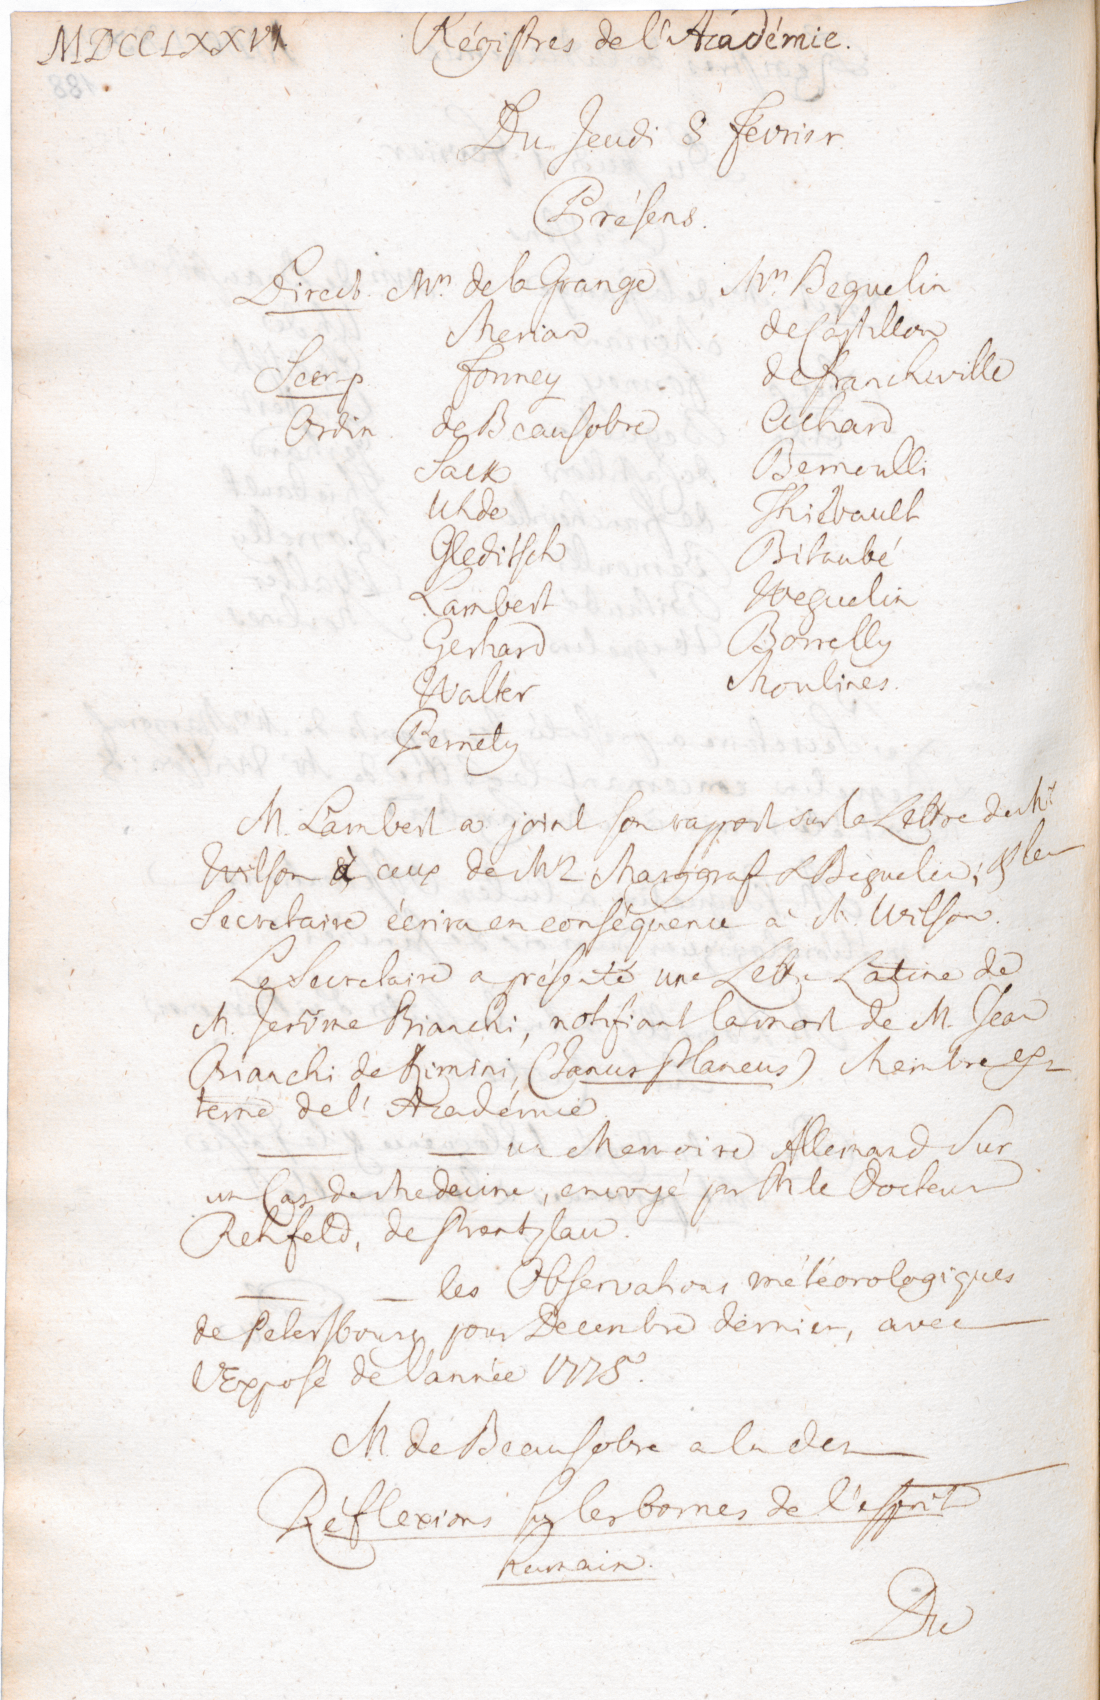 MDCCLXXVI. Régistres de l'Académie.
Du Jeudi 8 Février.
Présens.
Direct. Mrs de la Grange Mrs Beguelin
Merian de Castillon
Secr. p. Formey de Francheville
Ordin. de Beausobre Achard
Sack Bernoulli
Uhde Thiébault
Gleditsch Bitaubé
Lambert Weguelin
Gerhard Borrelly
Walter Moulines.
Pernety
M. Lambert a joint son rapport sur la Lettre de Mr
Wilson à ceux de Mrs Marggraf & Béguelin; & le
Secretaire écrira en conséquence à M. Wilson.
Le Secretaire a présenté une Lettre Latine de
M. Jerôme Bianchi, notifiant la mort de M. Jean
Bianchi de Rimini, (Janus Plancus) Membre ex-
terne de l'Académie.
— — un Memoire Allemand sur
un Cas de Medecine, envoyé par M. le Docteur
Rehfeld, de Prentzlau.
— — les Observations météorologiques
de Petersbourg pour Decembre dernier, avec
l'Exposé de l'année 1775.
M. de Beausobre a lu des
Réflexions sur les bornes de l'esprit
humain.
Du